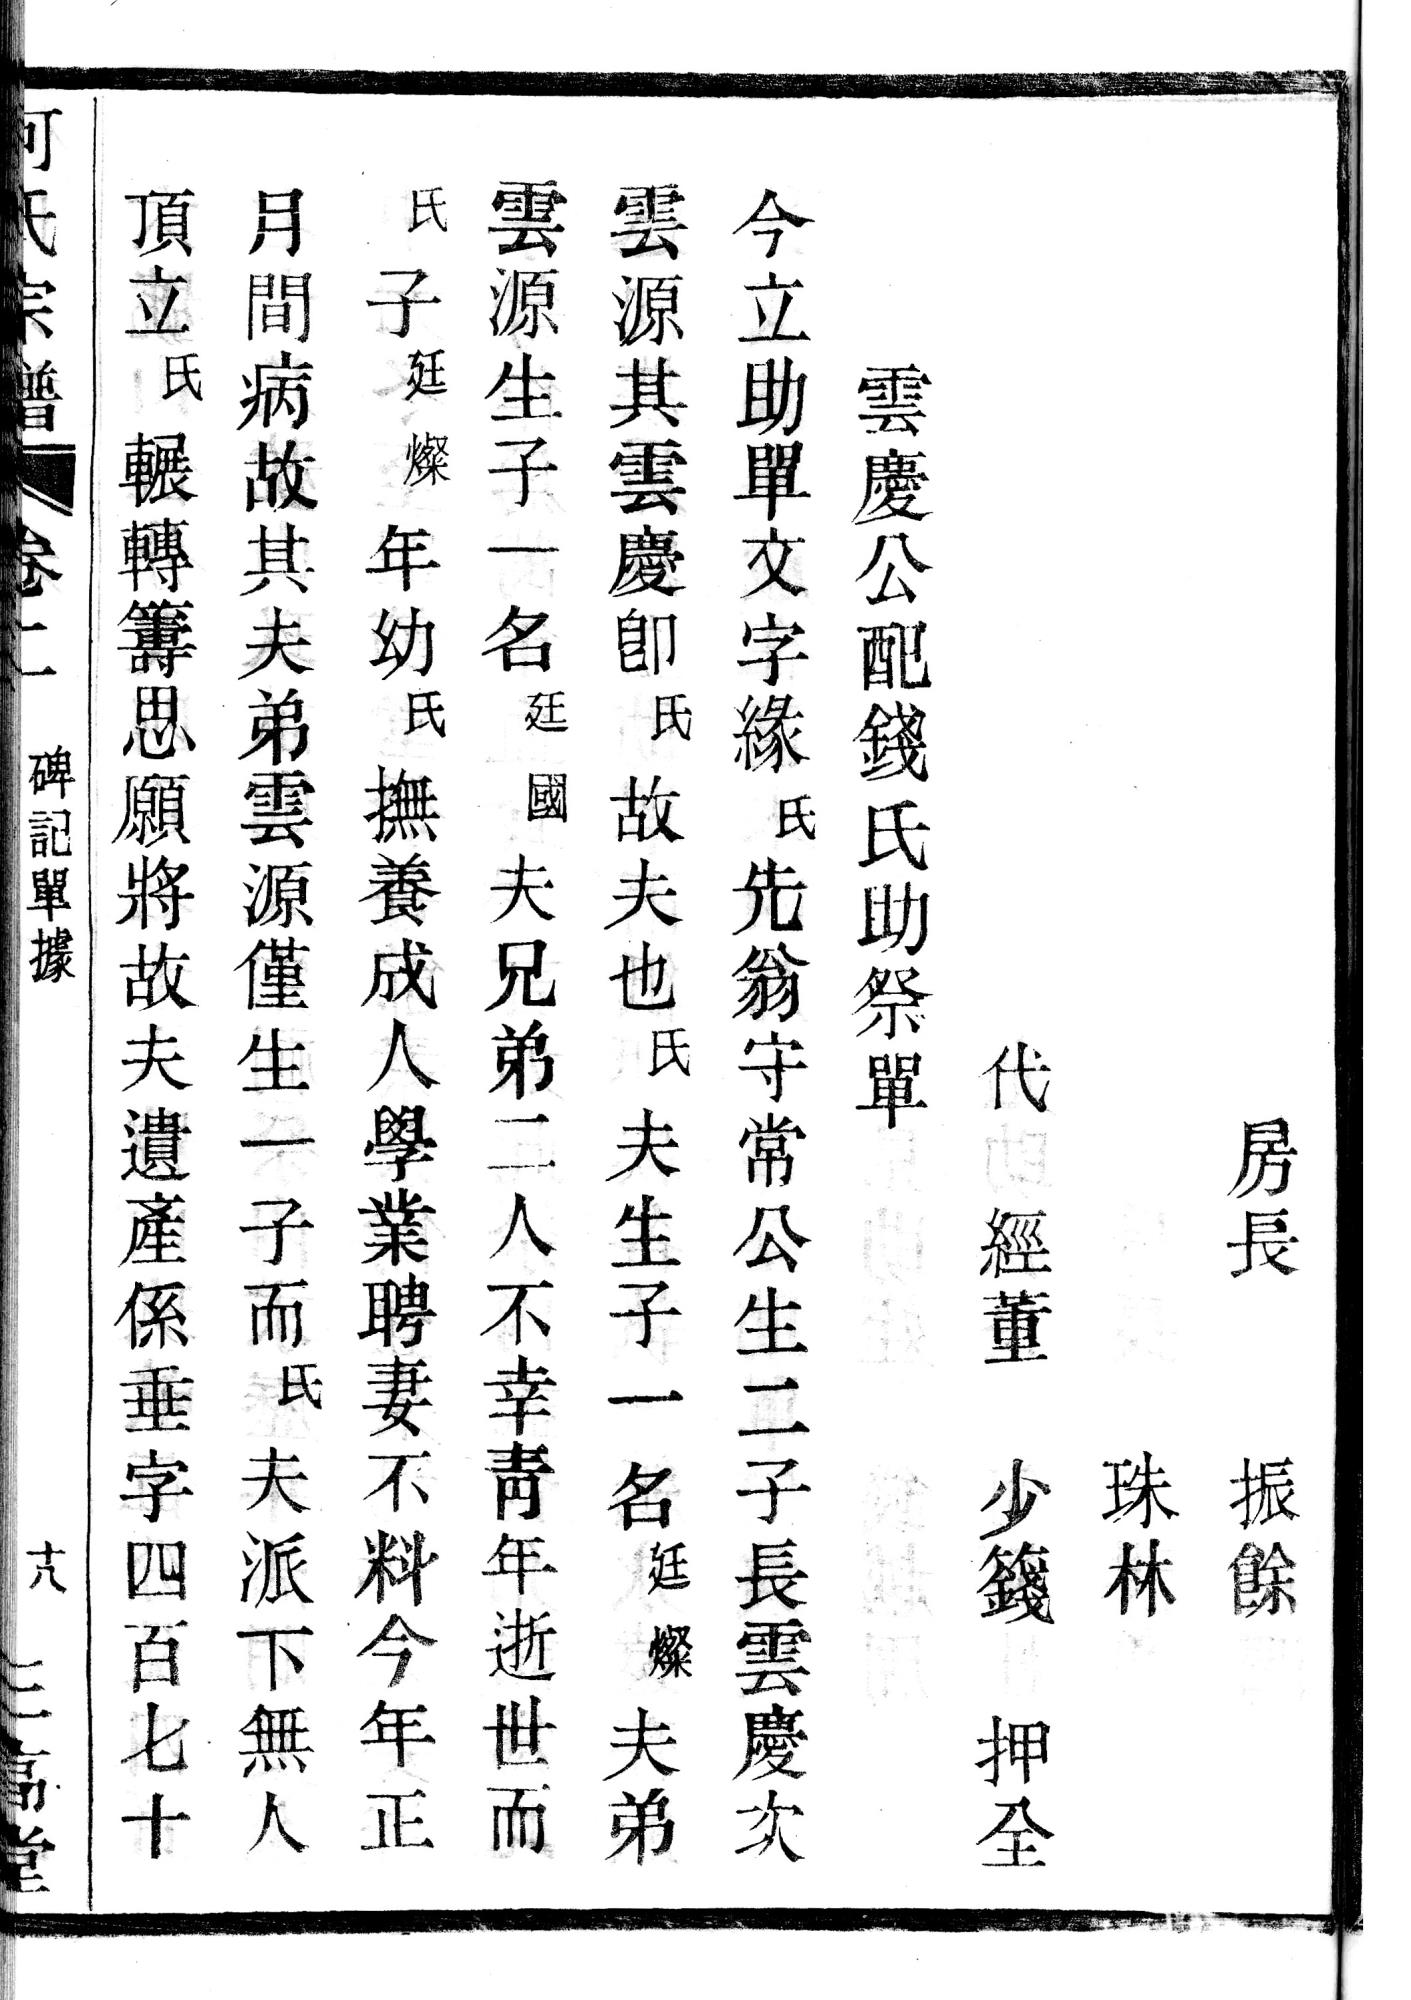 房長　振餘
珠林
代　經董　少籛　押仝
雲慶公配錢氏助祭單
今立助單文字緣氏先翁守常公生二子長雲慶次
雲源其雲慶卽氏故夫也氏夫生子一名廷燦夫弟
雲源生子一名廷國夫兄弟二人不幸靑年逝世而
氏子廷燦年幼氏撫養成人學業聘妻不料今年正
月間病故其夫弟雲源僅生一子而氏夫派下無人
頂立氏輾轉籌思願將故夫遺產係垂字四百七十
何氏宗譜　卷二　碑記單據　十八　三高堂